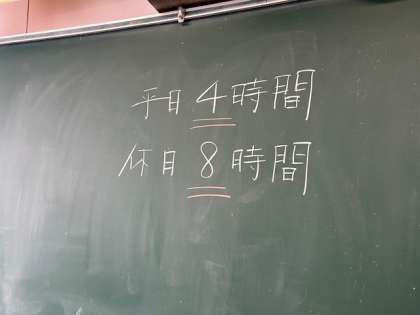 平日4時間
休日8時間